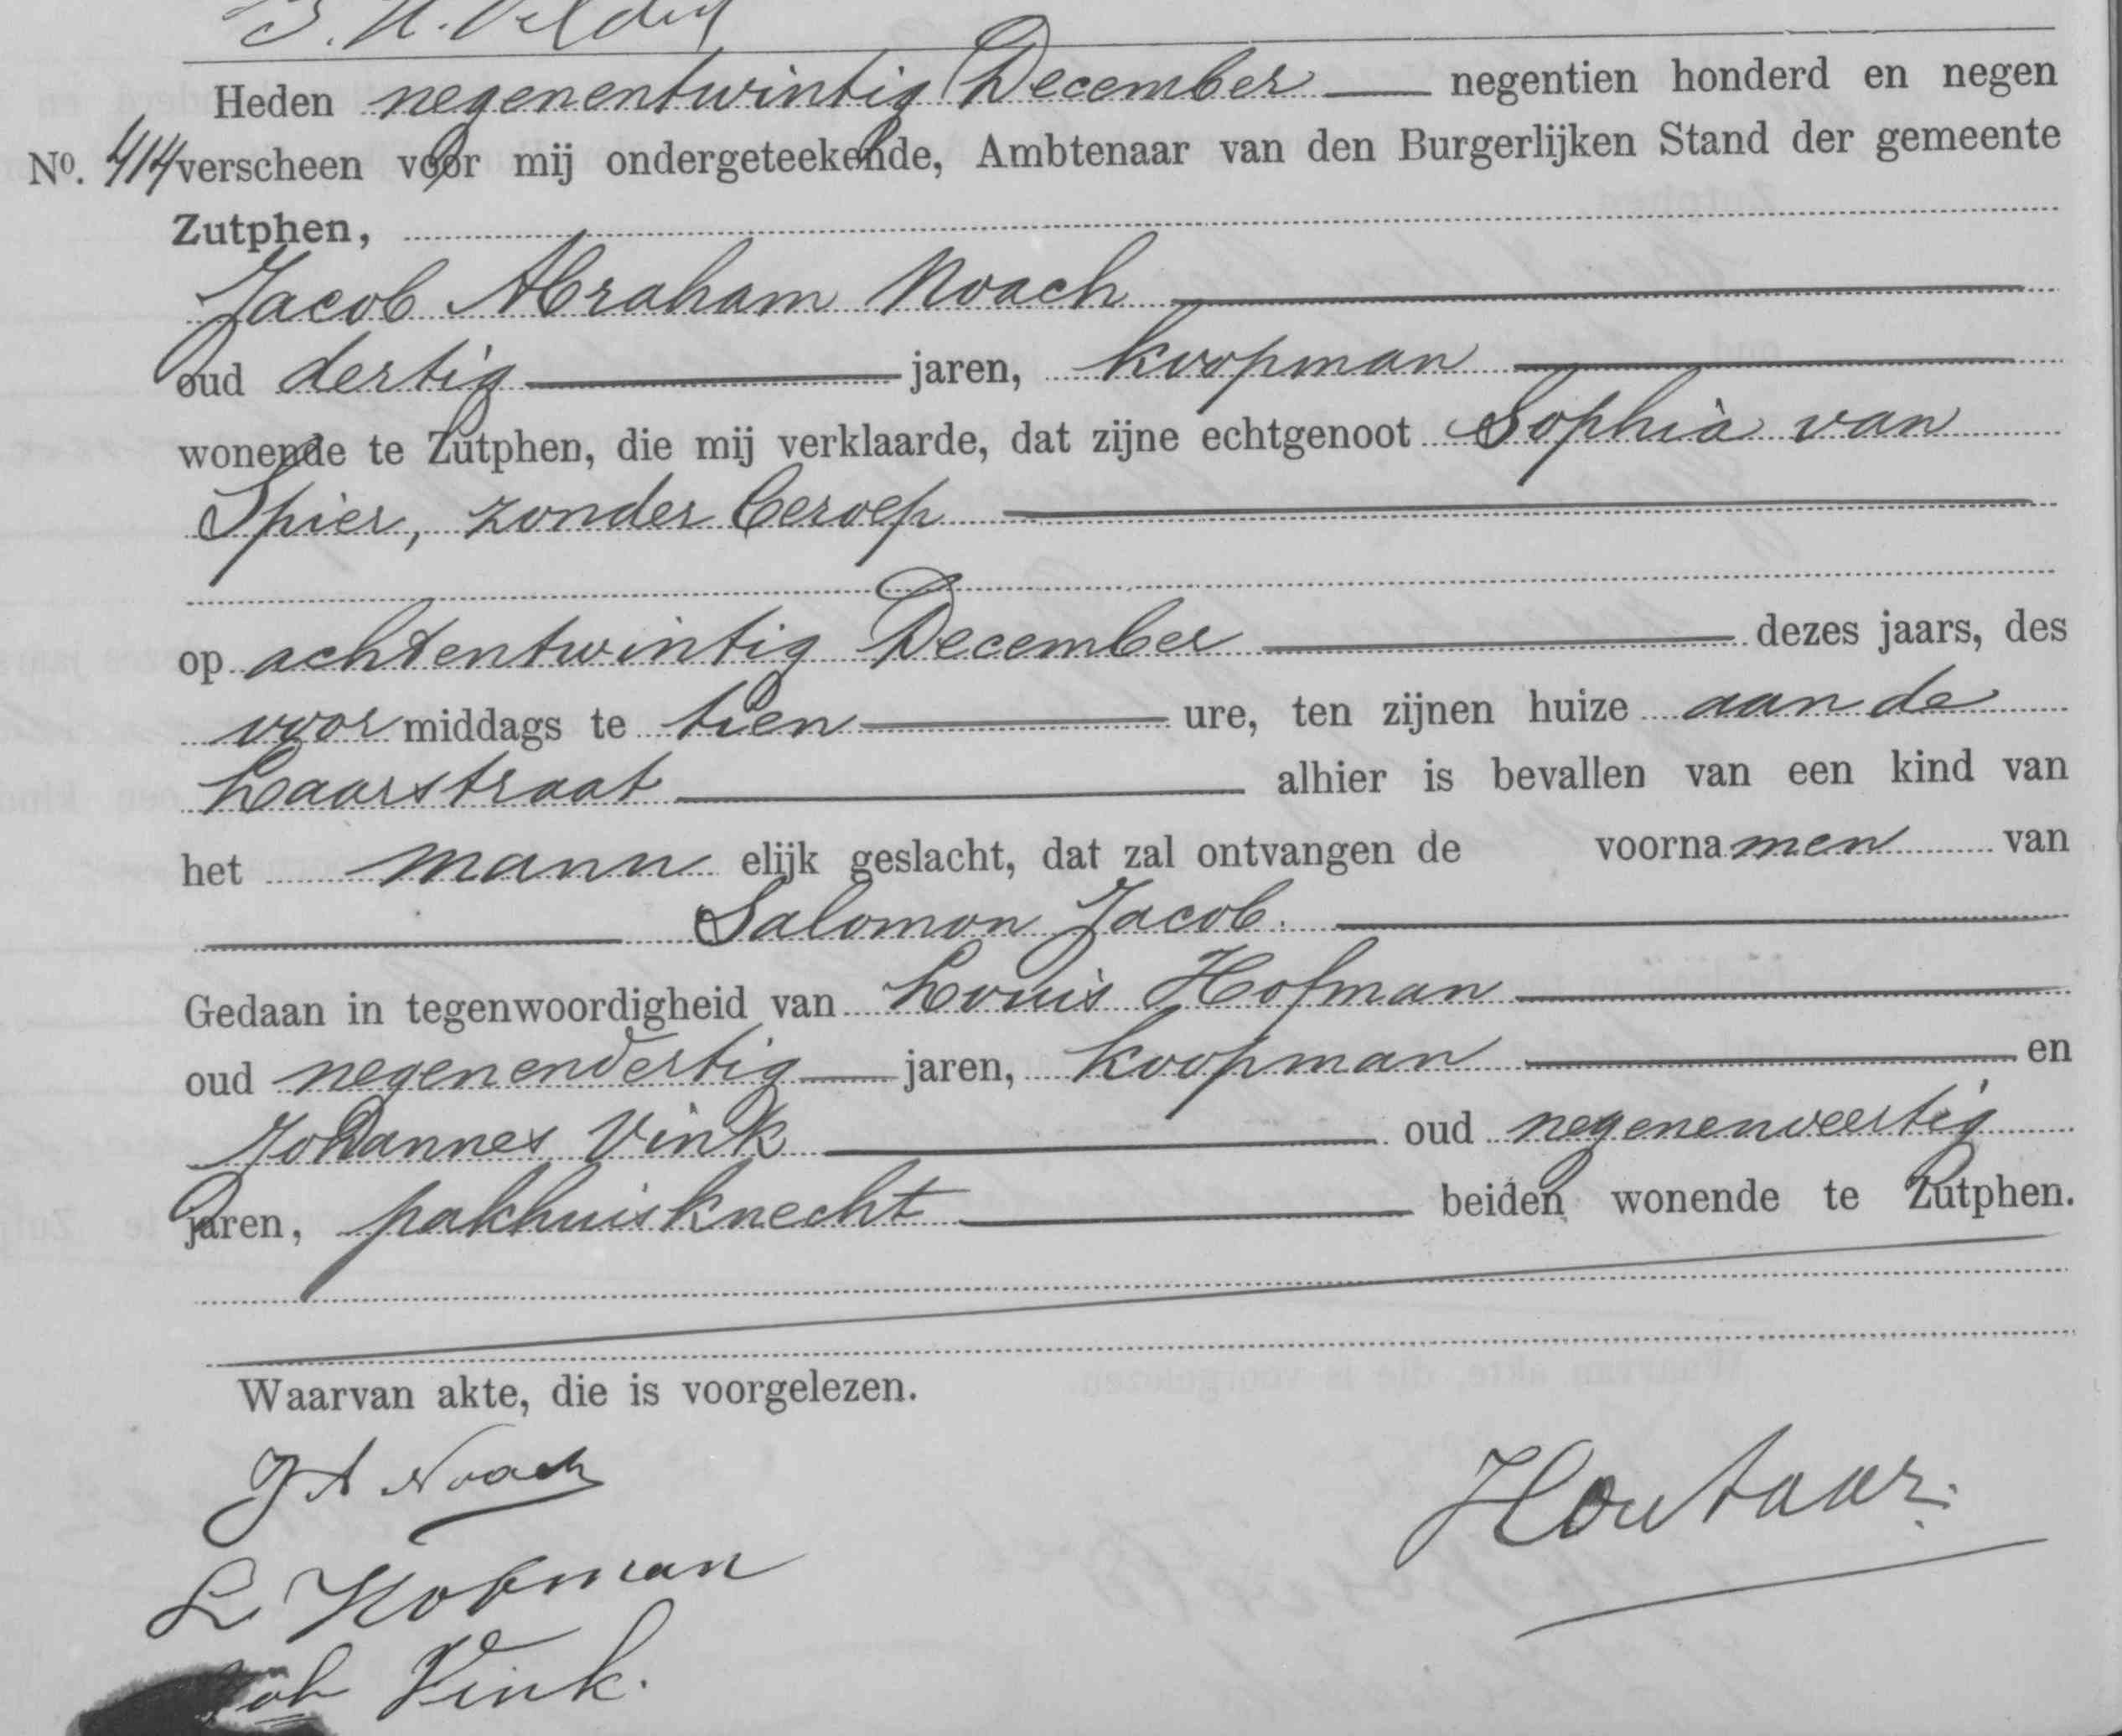 Heden negenentwintig December negentien honderd en negen
No. 414 verscheen voor mij ondergeteekende, Ambtenaar van den Burgerlijken Stand der gemeente
Zutphen,
Jacob Abraham Noach
oud dertig jaren, koopman
wonende te Zutphen, die mij verklaarde, dat zijne echtgenoot Sophia van
Spier, zonder beroep
op achtentwintig December dezes jaars, des
voor middags te tien ure, ten zijnen huize aan de
Laarstraat alhier is bevallen van een kind van
het mann elijk geslacht, dat zal ontvangen de voornamen van
Salomon Jacob.
Gedaan in tegenwoordigheid van Louis Hofman
oud negenendertig jaren, koopman en
Johannes Vink oud negenenveertig
jaren, pakhuisknecht beiden wonende te Zutphen.
Waarvan akte, die is voorgelezen.
J A Noach
L Hofman
Joh Vink.